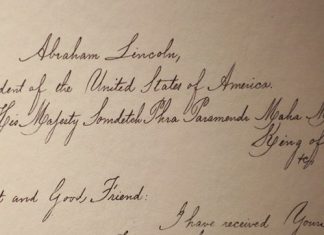 Abraham Lincoln,
dent of the United States of America.
His Majesty Somdetch Phra Paramendr Maha M
King of
&c
t and Good Friend:
I have received Your